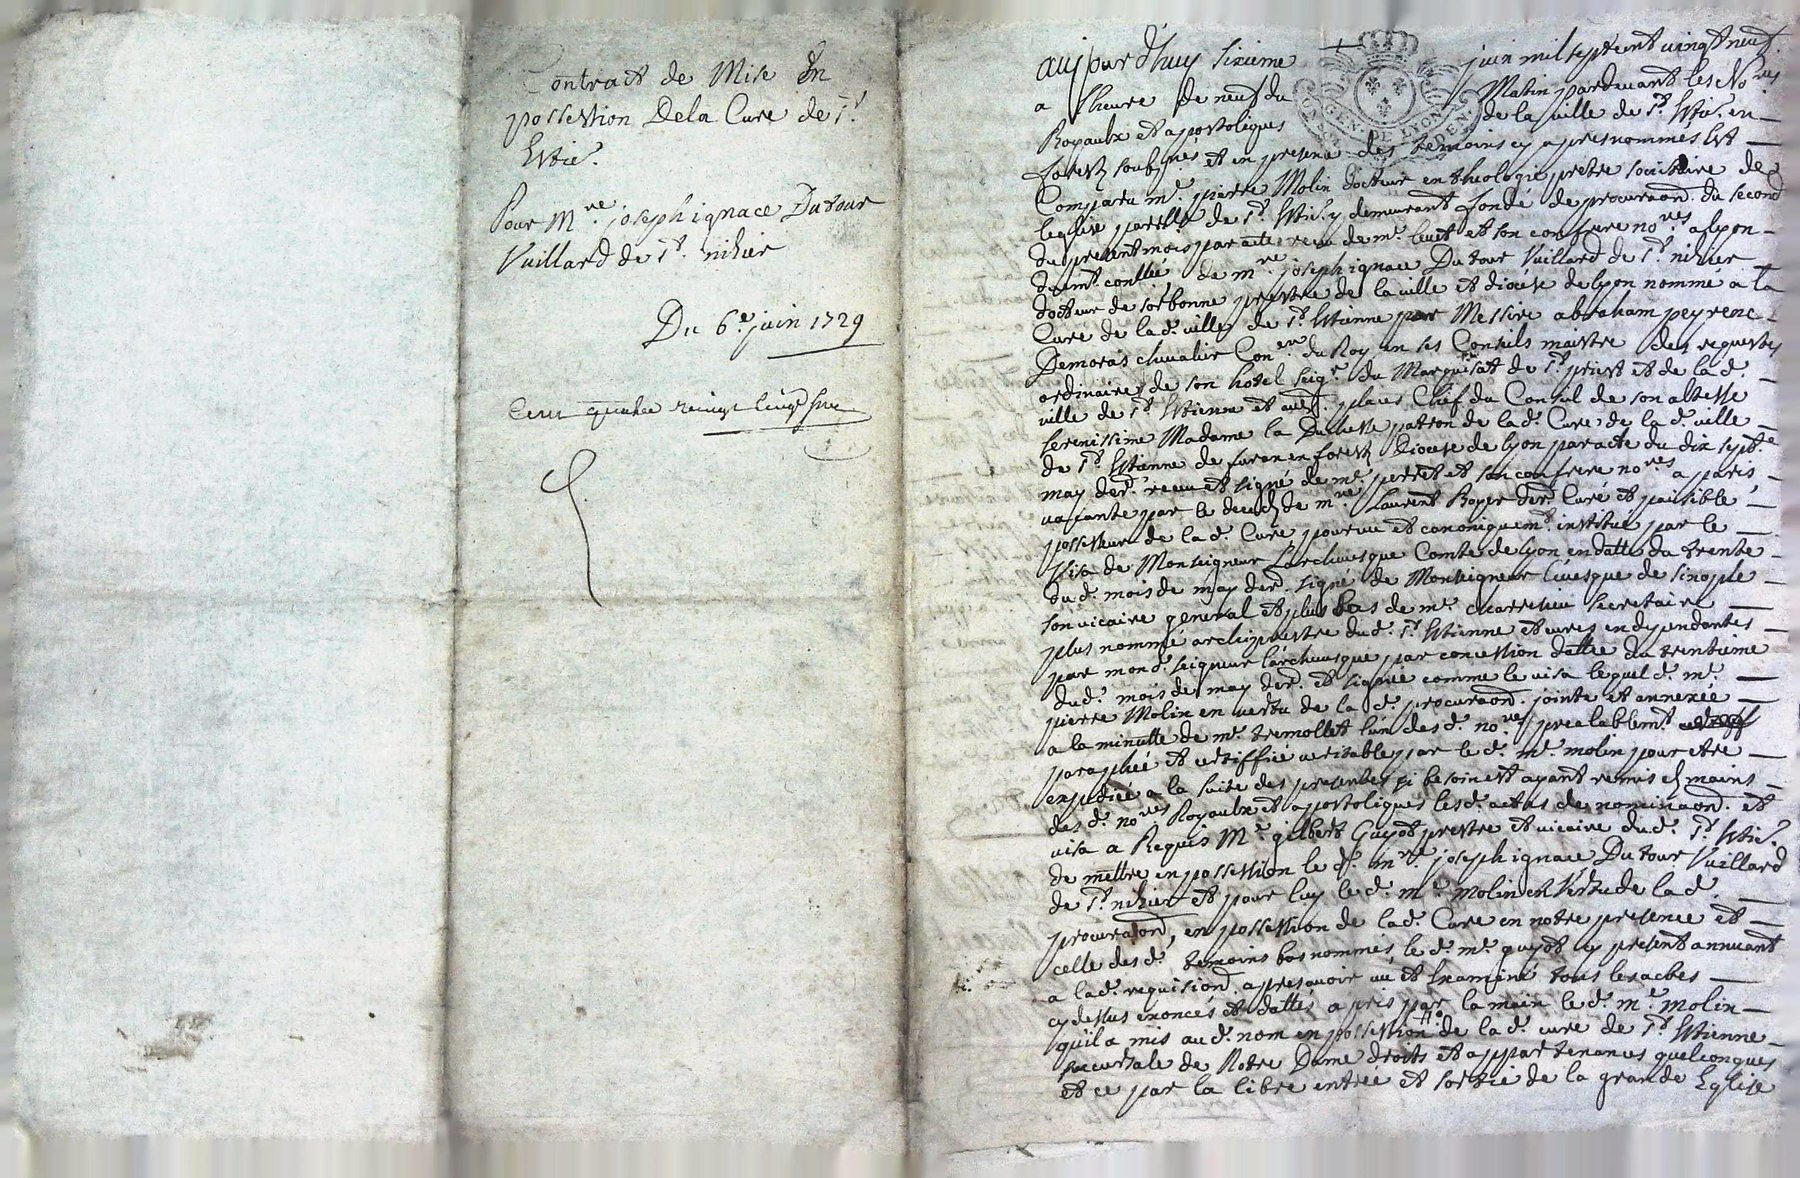 Contract de Mise En
possession De la Cure de St.
Estie.
Pour Mre. joseph ignace Dutour
Vuillard de St. nizier
Du 6e. juin 1729
Cent quatre vingt
GEN. DE LYON
aujourd'huy sixieme juin mil sept cent vingt neuf
a l'heure de neuf du Matin pardevant les Nores
Royaulx et apostoliques de la ville de St. Estie. en
forest soubsnés et en presence des temoins cy apres nommés Est
Comparu me. pierre Molin docteur en theologie pretre societaire de
leglise parlle de St. Estie. y demeurant fondé de procuraon. du second
du present mois par acte receu de me. et son confrere nores a lyon
duemt. contllé de mre joseph ignace Dutour Vuillard de St. nizier
docteur de sorbonne prestre de la ville et diocese de lyon nommé a la
Cure de lad. ville de St. Estienne par Messire abraham peyrenc
Demoras chevalier Coner. du Roy en ses Conseils maistre des requestes
ordinaires de son hotel seigr. du Marquisat de St. priest et de lad.
ville de St. Estienne et autt. places Chef du Conseil de son altesse
serenissime Madame la Duchesse patron de lad. Cure de lad. ville
de St. Estienne de furen en forest Diocese de lyon par acte du dix sept.e
may der. receu et signé de me. perret et son confrere nores a paris
vaccante par le decedz de mre Laurent Boyer der. Curé et paisible
possesseur de lad. Cure pourveu et canoniquemt. institué par le
Visa de Monseigneur L'archevesque Comte de lyon en datte du trente
dud. mois de may der. signé de Monseigneur l'evesque de sinople
son vicaire general et plus bas de me. secretaire
plus nommé archiprestre dud. St. Estienne et cures en dependantes
par mond. seigneur l'archevesque par concession dattée du trentieme
dud. mois de may der. et signée comme le visa lequel d. me.
pierre Molin en vertu de lad. procuraon. jointe et annexée
a la minutte de me. tremollet l'un desd. nores prealablemt.
paraphée et certiffiée veritable par led. me. molin pour etre
expediée a la suite des presentes si besoin est ayant remis ez mains
desd. nores Royaulx et apostoliques lesd. actes de nominaon. et
visa a Requis Me. gilbert Guyot prestre et vicaire dud. St. Estie.
de mettre en possession led. mre joseph ignace Dutour Vuillard
de St. nizier et pour luy led. me. molin en Vertu de lad.
procuraon. en possession de lad. Cure en notre presence et
celle desd. temoins bas nommés, led. me. guyot cy present annuant
a lad. requision. apres avoir vu et Examiné tous les actes
cy dessus enoncés et dattés a pris par la main led. me. molin
qu'il a mis aud. nom en possession de lad. cure de St. Estienne
succursale de Notre Dame droits et appartenances quelconques
et ce par la libre entrée et sortie de la grande Eglise